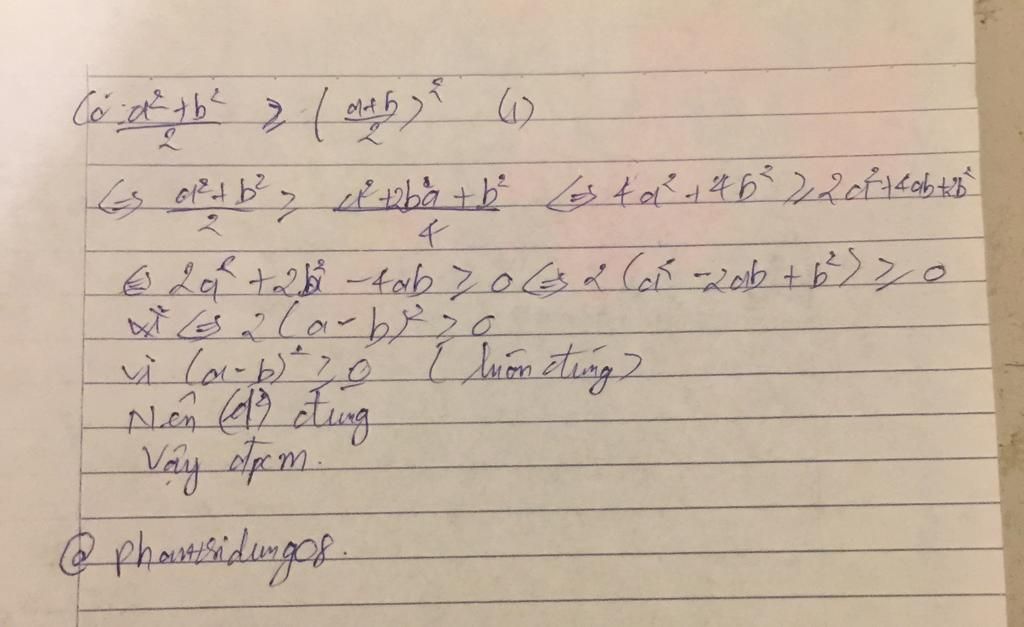 Có: a²+b²/2 ≥ (a+b/2)² (1)
⇔ a²+b²/2 ≥ a²+2ba+b²/4 ⇔ 4a²+4b² ≥ 2a²+4ab+2b²
⇔ 2a²+2b²-4ab ≥ 0 ⇔ 2(a²-2ab+b²) ≥ 0
⇔ 2(a-b)² ≥ 0
vì (a-b)² ≥ 0 (luôn đúng)
Nên đúng
Vậy đpcm.
@ phantridung08.